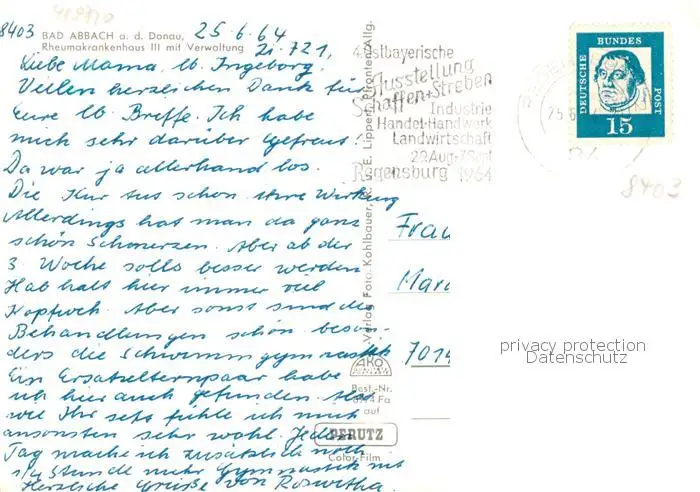 8403
25.6.64
BAD ABBACH a. d. Donau,
Rheumakrankenhaus III mit Verwaltung
Zi. 721,
Liebe Mama, lb. Ingeborg,
Vielen herzlichen Dank für
Eure lb. Breffe. Ich habe
mich sehr darüber gefreut!
Da war ja allerhand los.
Die Kur tut schon ihre Wirkung
Allerdings hat man da ganz
schön Schmerzen. Aber ab der
3. Woche solls besser werden
Hab halt hier immer viel
Kopfweh. Aber sonst sind die
Behandlungen schön beson-
ders die Schwimmgymnastik
Ein Ersatzelternpaar habe
ich hier auch gefunden. Also
wie Ihr seht fühle ich mich
ansonsten sehr wohl. Jeden
Tag mache ich zusätzlich noch
1/2 Stunde mehr Gymnastik mit
Herzliche Grüße von Roswitha.
Verlag Foto: Kohlbauer, R. u. E. Lippert, Pfronten/Allg.
AKO
Best.-Nr.
auf
PERUTZ
Color-Film
4. Ostbayerische
Ausstellung
Schaffen + Streben
Industrie
Handel-Handwerk
Landwirtschaft
Regensburg 1964
DEUTSCHE
BUNDES
POST
15
8403
Frau
7014
privacy protection
Datenschutz